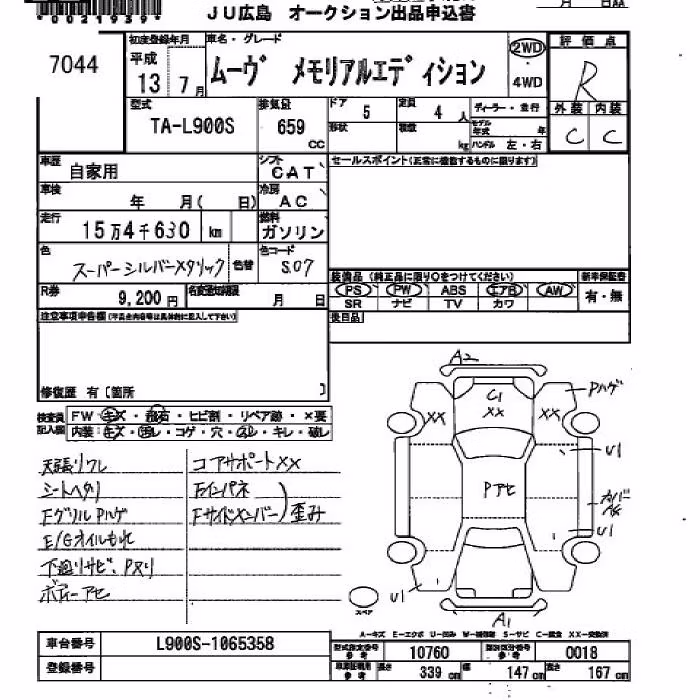 *0021939*
JU広島 オークション出品申込書
月 日
7044
初度登録年月
平成
13 7月
車名・グレード
ムーヴ メモリアルエディション
2WD
4WD
評価点
R
外装 内装
C C
型式
TA-L900S
排気量
659 CC
ドア 5
定員 4 人
形状
積載 kg
ディーラー・並行
モデル年式 年
ハンドル 左・右
車歴
自家用
シフト
CAT
セールスポイント(正常に機能するものに限ります)
車検
年 月( 日)
冷房
AC
走行
15万4千630 km
燃料
ガソリン
色
スーパーシルバーメタリック
色替
色コード
S07
装備品 (純正品に限り○をつけてください)
新車保証書
PS PW ABS エアB AW
SR ナビ TV カワ
有・無
R券
9,200円
名変通知期限
月 日
後日品
注意事項申告欄(不具合内容等は具体的に記入して下さい)
修復歴 有〔箇所 〕
検査員記入欄
FW キズ・飛石・ヒビ割・リペア跡・×要
内装:キズ・汚レ・コゲ・穴・スレ・キレ・破レ
天張リワレ コアサポートXX
シートヘタリ Fインパネ
FグリルPハゲ Fサイドメンバー 歪み
E/Gオイルもれ
下廻りサビ、Pヌリ
ボディーアセ
A2
C1
XX
XX
XX
Pハゲ
U1
Pアセ
カバー
U1
U1
A1
スペア
A-キズ E-エクボ U-凹み W-補修跡 S-サビ C-腐食 XX-交換済
車台番号
L900S-1065358
登録番号
型式指定番号 参考
10760
類別区分番号 参考
0018
車庫証明用 参考
長さ 339cm 幅 147cm 高さ 167cm